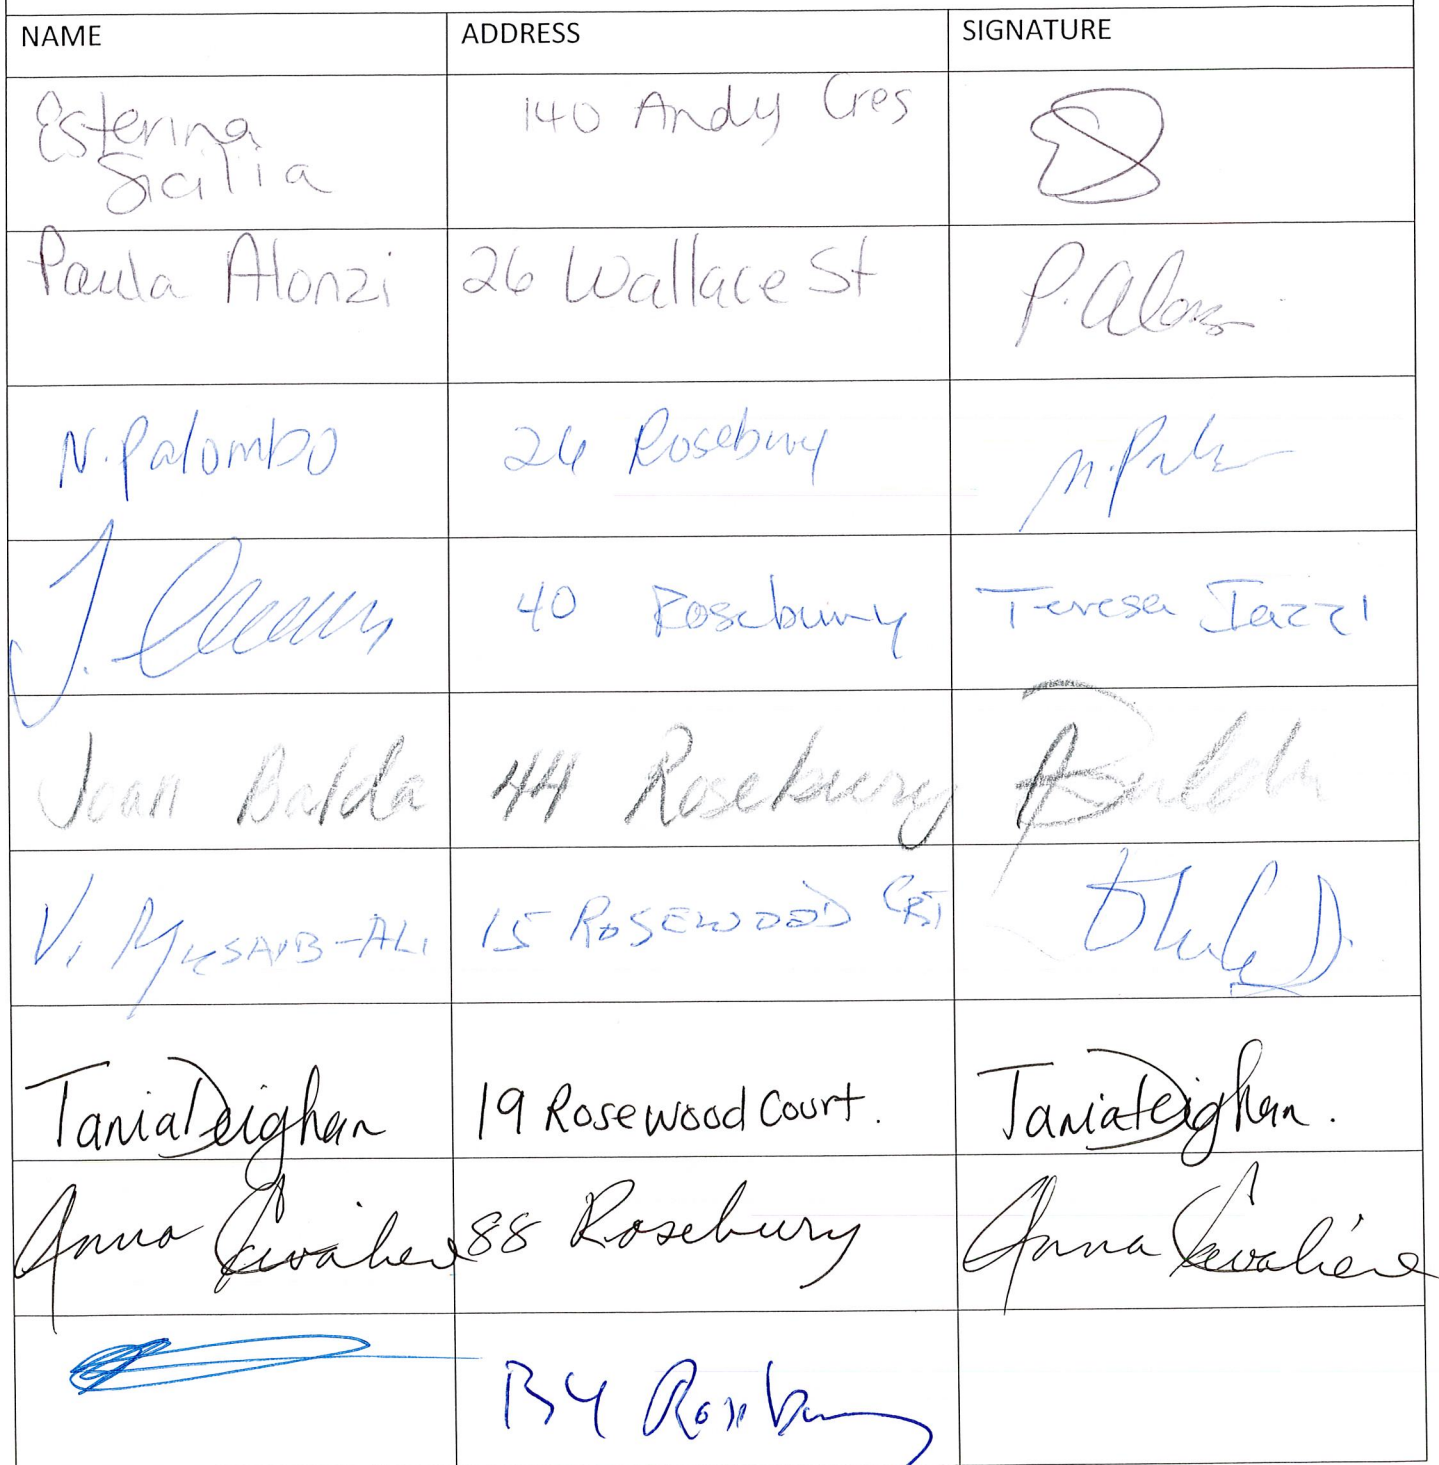 NAME ADDRESS SIGNATURE
Esterina 140 Andy Cres
Sicilia
Paula Alonzi 26 Wallace St P. Alonzi
N. Palombo 26 Rosebury N. Pal
J. 40 Rosebury Teresa Iazzi
Joan Balda 44 Rosebury Balda
V. MUSAIB-ALI 15 ROSEWOOD CRT
Tania Deighan 19 Rosewood Court. Tania Deighan.
Anna Cavaliere 88 Rosebury Anna Cavaliere
Rosebury